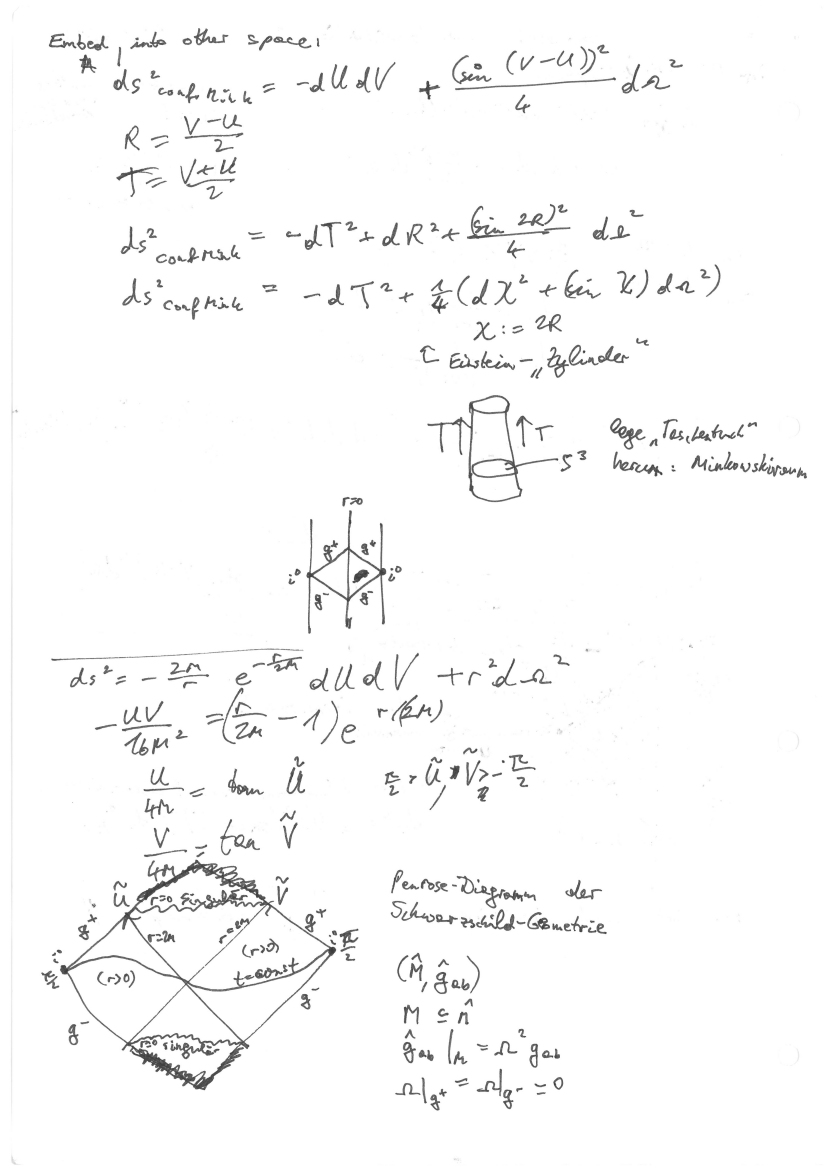 Embed into other space:
ds²_conf Mink = -dU dV + (sin (V-U))²/4 dΩ²
R = (V-U)/2
T = (V+U)/2
ds²_conf Mink = -dT² + dR² + (sin 2R)²/4 dΩ²
ds²_conf Mink = -dT² + 1/4 (dχ² + (sin χ) dΩ²)
χ := 2R
↑ Einstein-„Zylinder"
T ↑ ↑ T
S³
lege „Taschentuch"
herum: Minkowskiraum
r=0
g⁺ g⁺
i⁰ i⁰
g⁻ g⁻
ds² = - 2M/r e^(-r/2M) dU dV + r² dΩ²
- UV/16M² = (r/2M - 1) e^(r/(2M))
U/4M = tan Ũ
π/2 > Ũ, Ṽ > -π/2
V/4M = tan Ṽ
Ũ r=0 singulär Ṽ
g⁺ r=2M r=2M g⁺
i⁰ π/2 (r>0) (r>0) t=const i⁰ π/2
g⁻ g⁻
r=0 singulär
Penrose-Diagramm der
Schwarzschild-Geometrie
(M̂, ĝ_ab)
M ⊆ M̂
ĝ_ab |_M = Ω² g_ab
Ω|_g⁺ = Ω|_g⁻ = 0